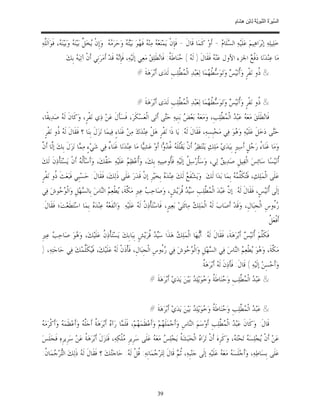 السّيرَةُ النّبَوِيّةُ لابْنِ هِشَام
خَلِيلِهِ إبْرَاهِيمَ عَلَيْهِ السّلَامُ - أَوْ كَمَا قَالَ - فَإِنْ يَمْنَعْهُ مِنْهُ فَهُوَ بَيْتُهُ وَحَرَمُهُ وَإِنْ يُخَلّ بَيْنَهُ وَبَيْنَهُ، فَوَاَللّهِ
مَا عِنْدَنَا دَفْعٌ عَنْهُ [ لَهُ ] حُنَاطَةُ: فَانْطَلِقْ مَعِي إلَيْهِ، فَإِنّهُ قَدْ أَمَرَنِي أَنْ آتِيَهُ بِكَ
& ذُو نَفْرٍ وَأُنَيْسٌ وَتَوَسّطُهُمَا لِعَبْدِ الْمُطّلِبِ لَدَى أَبْرَهَةَ #
& ذُو نَفْرٍ وَأُنَيْسٌ وَتَوَسّطُهُمَا لِعَبْدِ الْمُطّلِبِ لَدَى أَبْرَهَةَ #
فَانْطَلَقَ مَعَهُ عَبْدُ الْمُطّلِبِ، وَمَعَهُ بَعْضُ بَنِيهِ حَتّى أَتَى الْعَسْكَرَ، فَسَأَلَ عَنْ ذِي نَفْرٍ، وَكَانَ لَهُ صَدِيقًا،
حَتّى دَخَلَ عَلَيْهِ وَهُوَ فِي مَحْبِسِهِ، فَقَالَ لَهُ: يَا ذَا نَفْرٍ هَلْ عِنْدَكَ مِنْ غَنَاءٍ فِيمَا نَزَلَ بِنَا ؟ فَقَالَ لَهُ ذُو نَفْرٍ
وَمَا غَنَاءُ رَجُلٍ أَسِيرٍ بِيَدَيْ مَلِكٍ يَنْتَظِرُ أَنْ يَقْتُلَهُ غُدُوّا أَوْ عَشِيّا مَا عِنْدَنَا غَنَاءٌ فِي شَيْءٍ مِمّا نَزَلَ بِكَ إلّا أَنّ
أُنَيْسًا سَائِسَ الْفِيلِ صَدِيقٌ لِي، وَسَأُرْسِلُ إلَيْهِ فَأُوصِيهِ بِكَ، وَأُعْظِمُ عَلَيْهِ حَقّكَ، وَأَسْأَلُهُ أَنْ يَسْتَأْذِنَ لَكَ
عَلَى الْمَلِكِ، فَتُكَلّمُهُ بِمَا بَدَا لَكَ وَيَشْفَعُ لَكَ عِنْدَهُ بِخَيْرِ إنْ قَدَرَ عَلَى ذَلِكَ، فَقَالَ حَسْبِي فَبَعَثَ ذُو نَفْرٍ
إلَى أُنَيْسٍ، فَقَالَ لَهُ إنّ عَبْدَ الْمُطّلِبِ سَيّدُ قُرَيْشٍ، وَصَاحِبُ عِيرِ مَكّةَ، يُطْعِمُ النّاسَ بِالسّهْلِ وَالْوُحُوشَ فِي
رُءُوسِ الْجِبَالِ، وَقَدْ أَصَابَ لَهُ الْمَلِكُ مِائَتَيْ بَعِيرٍ، فَاسْتَأْذِنْ لَهُ عَلَيْهِ وَانْفَعْهُ عِنْدَهُ بِمَا اسْتَطَعْتَ؛ فَقَالَ
أَفْعَلُ
فَكَلّمَ أُنَيْسٌ أَبْرَهَةَ، فَقَالَ لَهُ أَيّهَا الْمَلِكُ هَذَا سَيّدُ قُرَيْشٍ بِبَابِكَ يَسْتَأْذِنُ عَلَيْكَ، وَهُوَ صَاحِبُ عِيرِ
مَكّةَ، وَهُوَ يُطْعِمُ النّاسَ فِي السّهْلِ وَالْوُحُوشَ فِي رُءُوسِ الْجِبَالِ، فَأْذَنْ لَهُ عَلَيْكَ، فَيُكَلّمْكَ فِي حَاجَتِهِ، [
وَأَحْسِنْ إلَيْهِ ] قَالَ فَأَذِنَ لَهُ أَبْرَهَةُ
& عَبْدُ الْمُطّلِبِ وَحُنَاطَةُ وَخُوَيْلِدٌ بَيْنَ يَدَيْ أَبْرَهَةَ #
& عَبْدُ الْمُطّلِبِ وَحُنَاطَةُ وَخُوَيْلِدٌ بَيْنَ يَدَيْ أَبْرَهَةَ #
قَالَ وَكَانَ عَبْدُ الْمُطّلِبِ أَوْسَمَ النّاسِ وَأَجْمَلَهُمْ وَأَعْظَمَهُمْ، فَلَمّا رَآهُ أَبْرَهَةُ أَجَلّهُ وَأَعْظَمَهُ وَأَكْرَمَهُ
عَنْ أَنْ يُجْلِسَهُ تَحْتَهُ، وَكَرِهَ أَنْ تَرَاهُ الْحَبَشَةُ يَجْلِسُ مَعَهُ عَلَى سَرِيرِ مُلْكِهِ، فَنَزَلَ أَبْرَهَةُ عَنْ سَرِيرِهِ فَجَلَسَ
عَلَى بِسَاطِهِ، وَأَجْلَسَهُ مَعَهُ عَلَيْهِ إلَى جَنْبِهِ، ثُمّ قَالَ لِتُرْجُمَانِهِ قُلْ لَهُ حَاجَتُكَ ؟ فَقَالَ لَهُ ذَلِكَ التّرْجُمَانُ
39